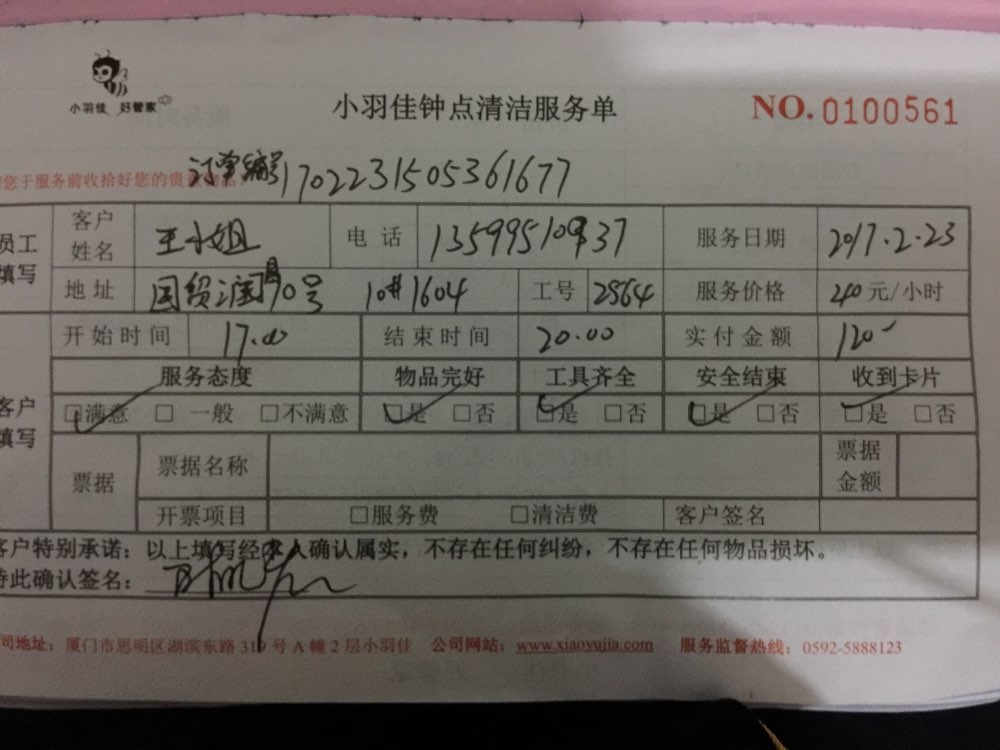 小羽佳 好管家
小羽佳钟点清洁服务单
NO.0100561
订单编号1702231505361677
您于服务前收拾好您的贵重物品!
员工填写 客户姓名 王小姐 电话 服务日期 2017.2.23
地址 国贸润园90号 10#1604 工号 2864 服务价格 240元/小时
开始时间 17.00 结束时间 20.00 实付金额 120
服务态度 物品完好 工具齐全 安全结束 收到卡片
客户填写 □满意 □一般 □不满意 □是 □否 □是 □否 □是 □否 □是 □否
票据 票据名称 票据金额
开票项目 □服务费 □清洁费 客户签名
客户特别承诺：以上填写经本人确认属实，不存在任何纠纷，不存在任何物品损坏。
特此确认签名：
司地址：厦门市思明区湖滨东路319号A幢2层小羽佳 公司网站：www.xiaoyujia.com 服务监督热线：0592-5888123